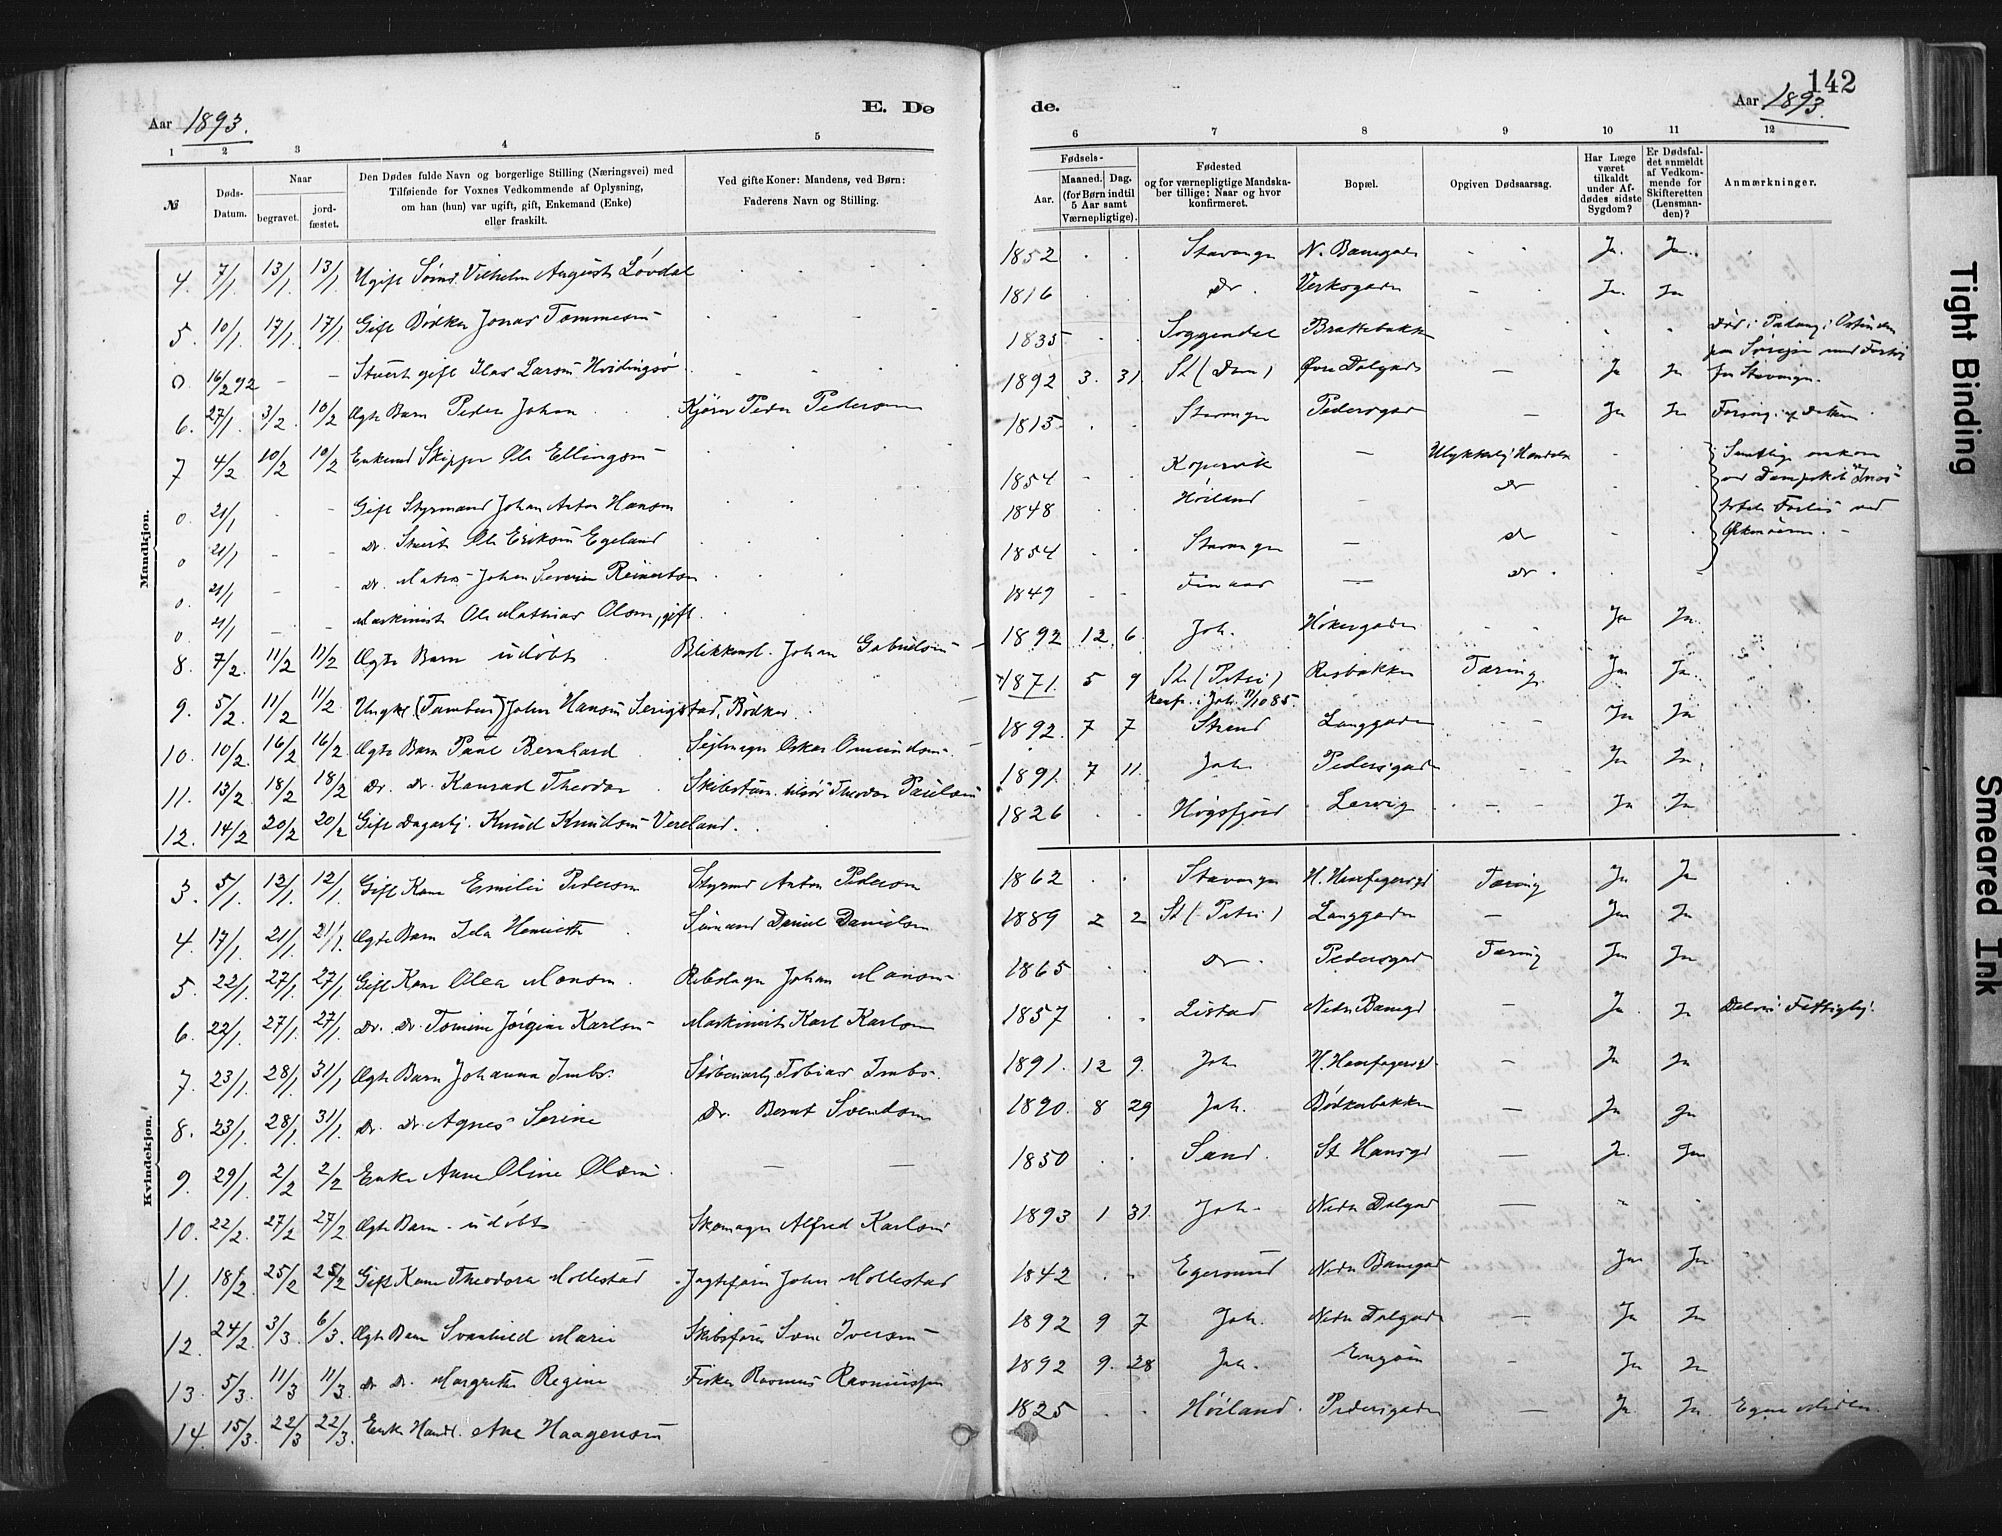 142
Aar 1893.
E. Dø
de.
Aar 1893.
1 2 3 4 5
6 7 8 9 10 11 12
№
Døds-
Datum.
Naar
begravet.
jord-
fæstet.
Den Dødes fulde Navn og borgerlige Stilling (Næringsvei) med
Tilføiende for Voxnes Vedkommende af Oplysning,
om han (hun) var ugift, gift, Enkemand (Enke)
eller fraskilt.
Ved gifte Koner: Mandens, ved Børn:
Faderens Navn og Stilling.
Fødsels-
Aar.
Maaned. Dag.
(for Børn indtil
5 Aar samt
Værnepligtige).
Fødested
og for værnepligtige Mandska-
ber tillige: Naar og hvor
konfirmeret.
Bopæl.
Opgiven Dødsaarsag.
Har Læge
været
tilkaldt
under Af-
dødes sidste
Sygdom?
Er Dødsfal-
det anmeldt
af Vedkom-
mende for
Skifteretten
(Lensman-
den)?
Anmærkninger.
Mandkjøn.
4. 7/1. 13/1. 13/1 Ugift Sømd. Vilhelm August Løvdal
1852 Stavanger Ja. Ja.
5 10/1. 17/1. 17/1 Gift Bødker Jonas Tommesen
1816 Do. Verksgaden Ja. Ja
0 16/2 92 – – Stuert gift Larsen Hvidingsø
1835 Soggendal Brattebakken
for Stavanger.
6. 27/1. 3/2. 10/2 Ægte Barn Peder Johan Kjører Peder Pedersen
1892 3. 31 St (Dom) Øvre Dalgade – Ja Ja
7 4/2 10/2 10/2 Enkemd Skipper Ole Ellingsen
1813 Stavanger Pedersgad – Ja Ja
0 21/1 Gift Styrmand Johan Anton Hansen
1854 Kopervik –
0 21/1 Do. Stuert Ole Eriksen Egeland
1848 Høiland – do
0. 21/1 – – do. Matros Johan Severin Reinertsen
1854 Stavanger – do
0 21/1 – – Maskinist Ole Mathias Olsen, gift
1849 – do.
8. 7/2. 11/2 11/2 Ægte Barn udøbt Blikkensl. Johan Gabrielsen
1892 12. 6. Joh. Høkergaden Ja Ja.
9. 5/2. 11/2 11/2 Ungk. (Tambur) John Hansen Serigstad, Bødker.
1871. 5 9 St. (Petri) Risbakken Tæring Ja Ja.
konf. i Joh. 11/10 85.
10. 10/2. 16/2 16/2 Ægte Barn Paul Bernhard Seilmager Oskar Omundsen
1892. 7 7 Strand Langgaden Ja Ja
11. 13/2. 18/2 18/2 Do. Do. Konrad Theodor Skibstøm. Theodor Paulsen
1891. 7 11. Joh. Pedersgad Ja Ja.
12. 14/2 20/2 20/2 Gift Dagarbj. Knud Knudsen Vereland.
1826 Høgsfjord Lervig Ja Ja
Kvindekjøn.
3. 5/1. 12/1. 12/1. Gift Kone Emilie Pedersen Styrmd Anton Pedersen
1862 Stavanger H. Haarfagersgd Tæring Ja Ja
4. 17/1. 21/1. 21/1. Ægte Barn Ida Henriette Sømand Daniel Danielsen
1889 2 2 St (Petri) Langgaden – Ja Ja
5. 22/1. 27/1. 27/1. Gift Kone Olea Monsen Rebslager Johan Monsen
1865 Do. Pedersgad Tæring Ja Ja
6. 22/1. 27/1. 27/1. Do. Do. Tomine Jørgine Karlsen Maskinist Karl Karlsen
1857 Listad Nedre Banegd – Ja Ja
7. 23/1. 28/1. 31/1 Ægte Barn Johanna Imbs. Støberiarbj Tobias Imbs.
1891. 12 9. Joh H. Haarfagersgd. – Ja Ja
8. 23/1. 28/1. 31/1. Do. Do. Agnes Serine Do. Bernt Svendsen
1890. 8 29 Joh. Bødkerbakken – Ja Ja
9. 29/1. 2/2 2/2 Enke Anne Oline Olsen – –
1850 Sand. St Hansgd – Ja. Ja
10. 22/2. 27/2 27/2 Ægte Barn – udøbt Skomager Alfred Karlsen
1893 1 31. Joh. Nedre Dalgad –
11. 18/2. 25/2 25/2 Gift Kone Theodora Mollestad Jagtefører John Mollestad
1842 Egersund Nedre Banegad Ja Ja
12. 24/2. 3/3. 6/3. Ægte Barn Svanhild Marie Skibsfører Sven Iversen
1892 9 7 Joh. Nedre Dalgad – Ja Ja
13. 5/3. 11/3 11/3 do do. Margrethe Regine Fisker Rasmus Rasmussen
1892 9. 28 Joh. Engøen – Ja Ja
14. 15/3. 22/3 22/3. Enke Handl. Ane Haagensen
1825 Høiland. Pedersgaden – Ja Ja
Tight Binding
Smeared Ink